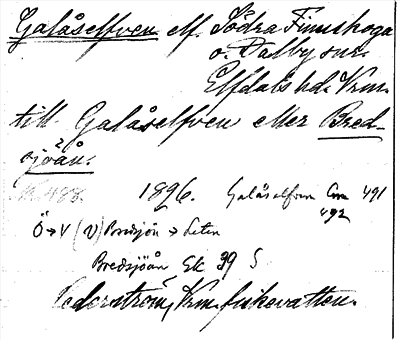 Galåselfven elf. Södra Finnskoga
o. Dalby snr.
Elfdals hd. Vrm.
till Galåselfven eller Bred-
sjöån.
N. 488. 1896. Galåselfven Cm 491
492
Ö→V (V) Bredsjön → Leten
Bredsjöån Ek 39 S
Cederström, Vrm. fiskevatten.